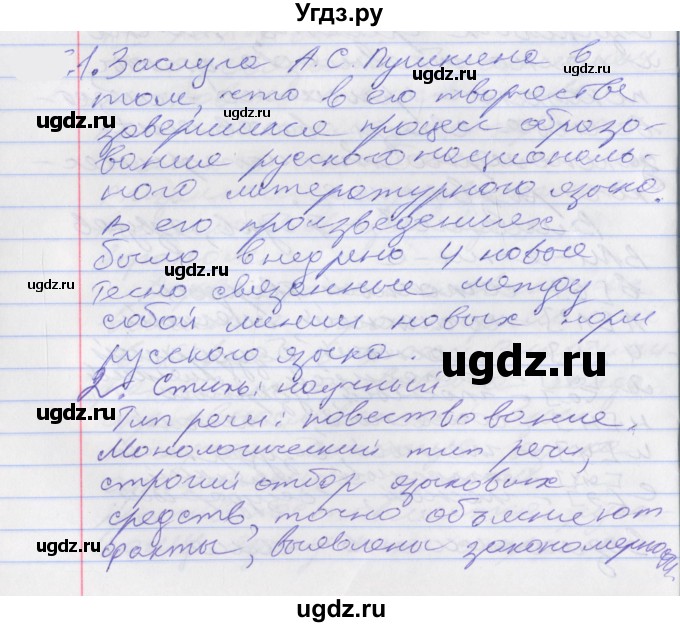 Угдз.ру
1. Заслуга А.С. Пушкина в
том, что в его творчестве
завершился процесс образо-
вания русского националь-
ного литературного языка.
В его произведениях
было внедрено 4 новые
тесно связанные между
собой линии новых норм
русского языка.
2. Стиль: научный
Тип речи: повествование.
Монологический тип речи,
строгий отбор языковых
средств, точно объясняют
факты, выявлены закономерности.
ugdz.ru
ugdz.ru
ugdz.ru
ugdz.ru
ugdz.ru
ugdz.ru
ugdz.ru
ugdz.ru
ugdz.ru
ugdz.ru
ugdz.ru
ugdz.ru
ugdz.ru
ugdz.ru